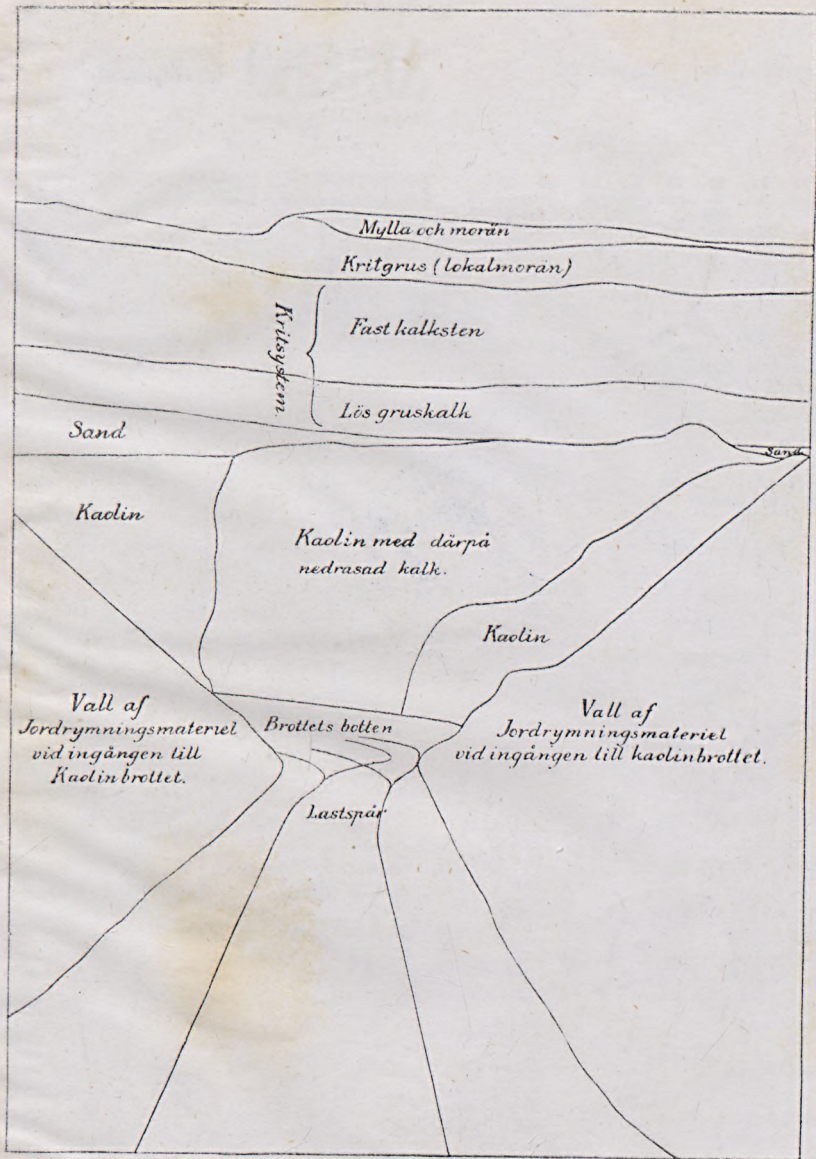 Mylla och morän
Kritgrus (lokalmorän)
Kritsystem.
Fast kalksten
Lös gruskalk
Sand
Sand.
Kaolin
Kaolin med därpå
nedrasad kalk.
Kaolin
Vall af
Jordrymningsmateriel
vid ingången till
Kaolinbrottet.
Brottets botten
Vall af
Jordrymningsmateriel
vid ingången till kaolinbrottet.
Lastspår